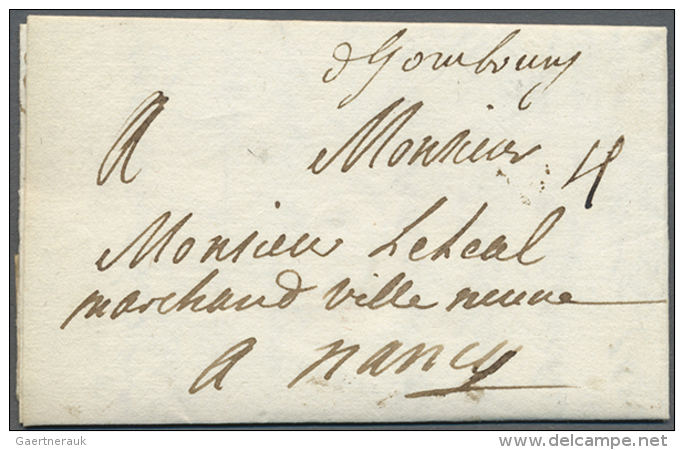 d Hombourg
A Monsieur 4
Monsieur
marchand ville neuve
a nancy
Gaertnerauk
www.delcampe.net